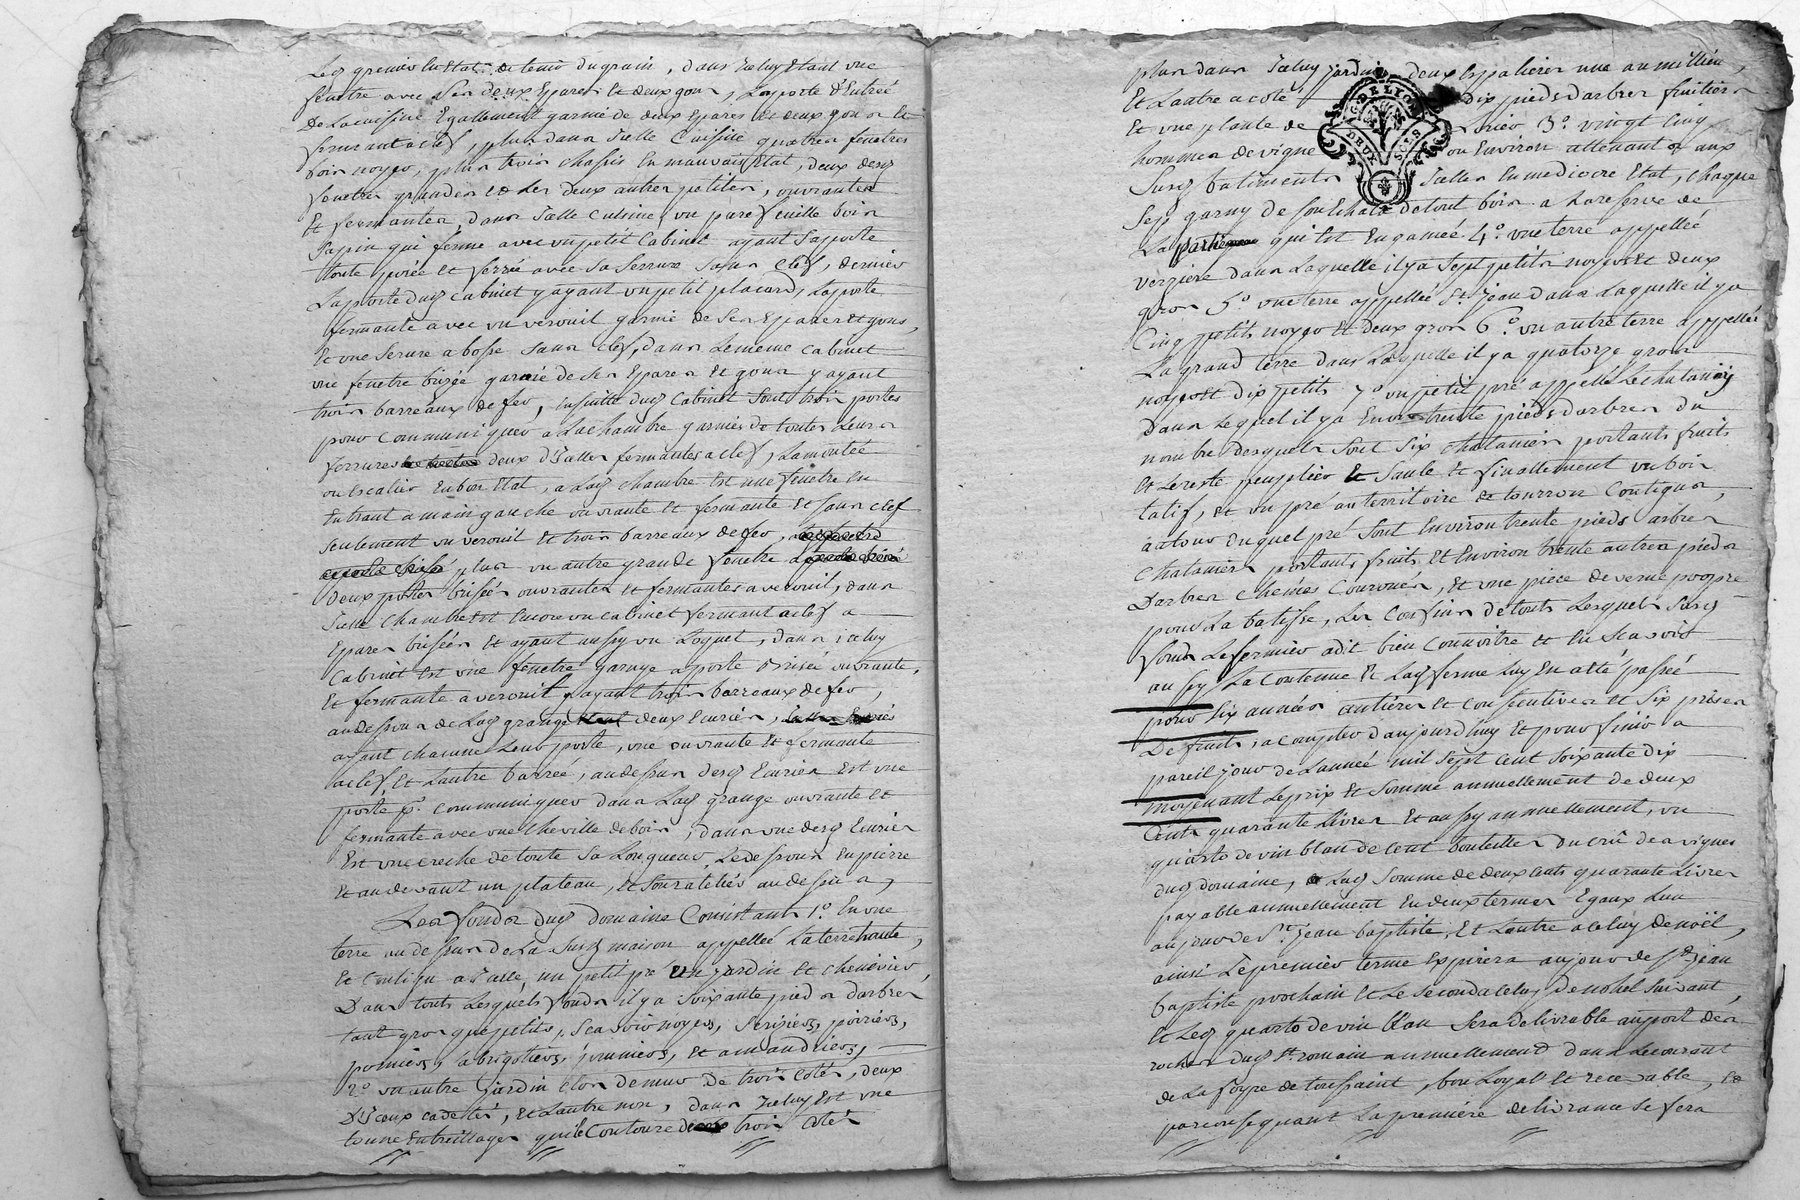 Led grenier en Etat de tenir du grain, dans Iceluy Etant une
fenetre avec Ses deux Epares Et deux gons, La porte d'Entrée
De La cuisine Egallement garnie de deux Epares Et deux gons Et
fermant a clef, plus dans Icelle Cuisine quatres fenetres
bois noyer, plus trois chassis En mauvais Etat, deux desd
fenetres grandes et Les deux autres petites, ouvrantes
Et fermantes, dans Icelle Cuisine, un parefeuille bois
Sapin qui ferme avec un petit Cabinet ayant Sa porte
toute et ferrée avec Sa Serrure Sans Clef, derrier
La porte dud Cabinet y ayant un petit placard, La porte
fermante avec un verouil garnie de Ses Epares et gons,
Et une Serure a bosse Sans Clef, dans Le meme Cabinet
une fenetre brizée garnie de Ses Epares Et gons y ayant
trois barreaux de fer, Ensuitte dud Cabinet Sont trois portes
pour Communiquer a La chambre garnies de toutes Leurs
ferrures deux d'Icelles fermantes a clef, La montée
ou Escalier En bon Etat, a Lad chambre Est une fenetre En
Entrant a main gauche ouvrante Et fermante Et Sans Clef
Seulement un verouil Et trois barreaux de fer,
plus un autre grande fenetre
deux portes brisées ouvrantes et fermantes a verouil, dans
Icelle Chambre Est Encore un Cabinet fermant a clef a
Epares brisées Et ayant aussy un Loquet, dans iceluy
Cabinet Est une fenetre garnye a porte brisée ouvrante,
Et fermante a verouil y ayant trois barreaux de fer,
au dessous de Lad grange deux Ecuries,
ayant chacune Leur porte, une ouvrante Et fermante
a clef, Et L'autre barreé, au dessus desd Ecuries Est une
porte pr. Communiquer dans Lad grange ouvrante Et
fermante avec une Cheville de bois, dans une desd Ecuries
Est une creche de toute Sa Longueur, Le dessous En pierre
Et au devant un plateau, Et Son ratelier au dessus
Les fonds dud domaine Consistans 1.º En une
terre au dessus de La Susd maison appelleé La terre haute,
Et Contigu a Icelle, un petit pré Un Jardin Et chenevier,
Dans touts Lesquels fonds il y a Soixante pied d'arbres
tant gros que petits, Scavoir noyers, Serisiers, poiriers,
pomiers, abrigotiers, pruniers, Et amandriers,
2.º un autre Jardin Clos de mur de trois Cotés, deux
D'Iceux cadettés, Et L'autre non, dans Iceluy Est une
tonne Entreillagée qui Le Contourne trois Cotés
plus dans Iceluy jardin deux Espaliers une au millieu,
Et L'autre a coté dix pieds d'arbres fruitiers
Et une plante de 3.º vingt Cinq
hommes de vigne ou Environ attenants aux
Susd batiments Icelles En mediocre Etat, chaque
Sep garny de Son Echalat de tout bois a La reserve de
La partie qui Est En gameé. 4.º une terre appelleé
verziere dans Laquelle il y a Sept petits noyers Et deux
gros 5.º une terre appelleé St. Jean dans Laquelle il y a
Cinq petits noyers Et deux gros 6.º un autre terre appellée
La grand terre dans Laquelle il y a quatorze gros
noyers Et dix petits 7.º un petit pré appellé Le chatanay
dans Lequel il y a Environ trente pieds d'arbres du
nombre desquels Sont Six Chataniers portants fruits
Et Le reste peuplier Et Saule Et finallement un bois
talif, Et un pré au territoire de tourron Contigus,
autour duquel pré Sont Environ trente pieds arbres
Chataniers portants fruits Et Environ trente autres pieds
D'arbres chênes Couronés, Et une piece de verne propre
pour La batisse, Les Confins de touts Lesquels Susd
fonds Le fermier a dit bien Connoitre Et En Scavoir
aussy La Contenue Et Lad ferme Luy En a été passée
pour Six années entières Et Consecutives Et Six prises
De fruits, a Compter d'aujourd'huy Et pour finir a
pareil jour de L'année mil Sept Cent Soixante dix
moyenant Le prix Et Somme annuellement de deux
Cents quarante Livres Et aussy annuellement, un
quarto de vin blan de Cent bouteilles du crû des vignes
dud domaine, Lad Somme de deux Cents quarante Livres
payable annuellement En deux termes Egaux L'un
au jour de St. Jean Baptiste, Et L'autre a celuy de noël,
ainsi Le premier terme Expirera au jour de St. Jean
baptiste prochain Et Le Second a celuy De nohel Suivant,
Et Led quarto de vin blan Sera delivrable au port des
roches dud St. romain annuellement dans Le courant
de La foyre de toussaint, bon Loyal Et recevable, Et
par consequant La premiere delivrance Se fera
G. DE LION
DEUX SOLS